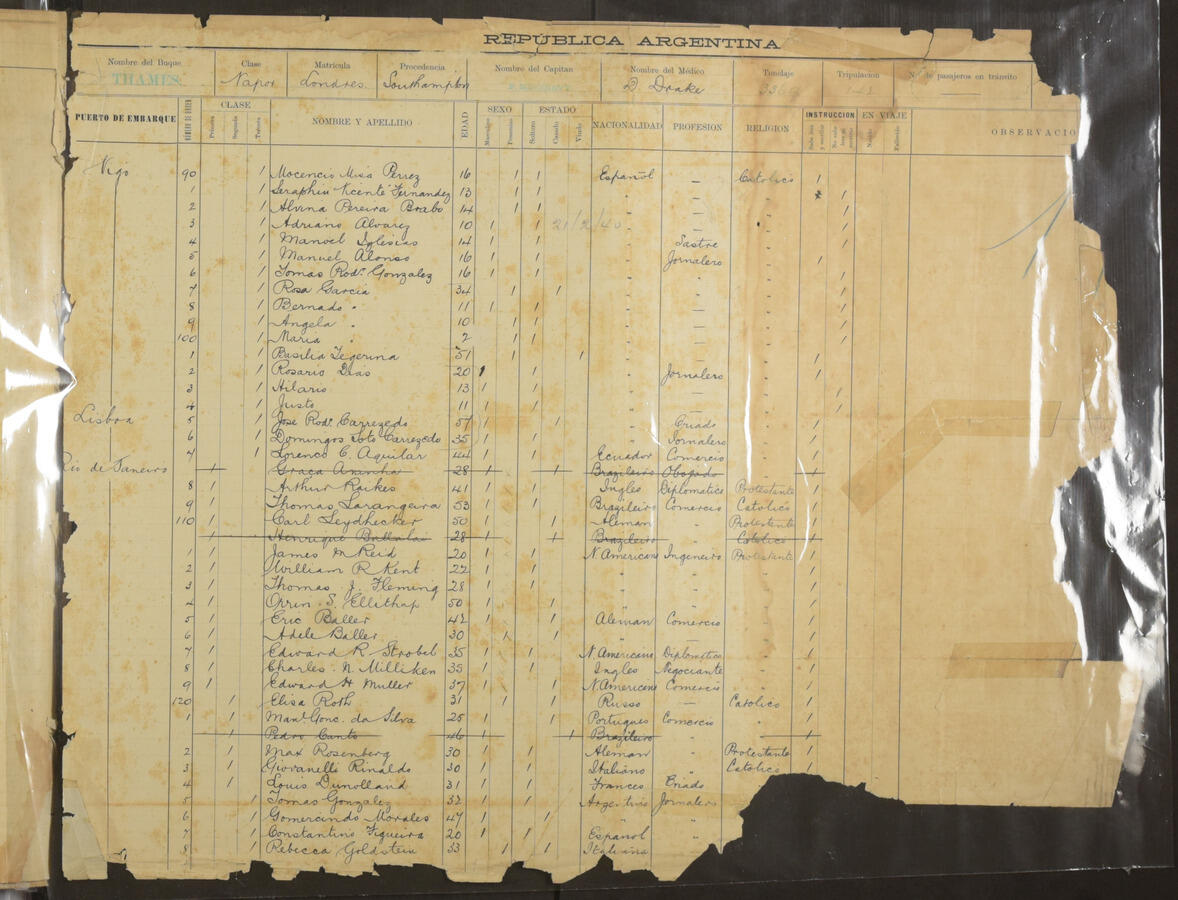 REPÚBLICA ARGENTINA
Nombre del Buque Clase Matrícula Procedencia Nombre del Capitan Nombre del Médico Tonelaje Tripulacion Nº de pasajeros en tránsito
THAMES Vapor Londres Southampton D Drake
PUERTO DE EMBARQUE NÚMERO DE ORDEN CLASE NOMBRE Y APELLIDO EDAD SEXO ESTADO NACIONALIDAD PROFESION RELIGION INSTRUCCION EN VIAJE OBSERVACIO
Primera Segunda Tercera Masculino Femenino Soltero Casado Viudo
Vigo 90 1 Mocencio Misa Perrez 16 1 1 Español — Catolico 1
1 1 Seraphin Vicente Fernandez 13 1 1 " — " 1
2 1 Alvina Pereira Brabo 14 1 1 " — " 1
3 1 Adriano Alvarez 10 1 1 21/2/40 " — " 1
4 1 Manoel Iglesias 14 1 1 " Sastre " 1
5 1 Manuel Alonso 16 1 1 " Jornalero " 1
6 1 Tomas Rodr. Gonzalez 16 1 1 " " " 1
7 1 Rosa Garcia 34 1 1 " — " 1
8 1 Bernado " 11 1 1 " — " 1
9 1 Angela " 10 1 1 " — " 1
100 1 Maria " 7 1 1 " — " 1
1 1 Basilia Tegerina 51 1 1 " — " 1
2 1 Rosario Dias 20 1 1 " Jornalero " 1
3 1 Hilario 13 1 1 " — " 1
4 1 Justo 11 1 1 " — " 1
Lisboa 5 1 José Rodr. Carrezedo 57 1 1 " Criado " 1
6 1 Domingos Soto Carrezedo 35 1 1 " Jornalero " 1
7 1 Lorenco C. Aguilar 44 1 1 Ecuador Comercio " 1
Rio de Janeiro 1 Graca Aranha 28 1 1 Brazileiro Obogado " 1
8 1 Arthur Raikes 41 1 1 Ingles Diplomatico Protestante 1
9 1 Thomas Larangeira 53 1 1 Brazileiro Comercio Catolico 1
110 1 Carl Seydhecker 50 1 1 Aleman " Protestante 1
1 Henrique Batalha 28 1 1 Brazileiro " Catolico 1
1 1 James M Reid 20 1 1 N. Americano Ingeneiro Protestante 1
2 1 William R Kent 22 1 1 " " " 1
3 1 Thomas J. Fleming 28 1 1 " " " 1
4 1 Orrin S. Ellithap 50 1 1 " " " 1
5 1 Eric Baller 42 1 1 Aleman Comercio " 1
6 1 Adele Baller 30 1 1 " — " 1
7 1 Edward R Strobel 35 1 1 N. Americano Diplomatico " 1
8 1 Charles N Milliken 35 1 1 Ingles Negociante " 1
9 1 Edward H Muller 37 1 1 N. Americano Comercio " 1
120 1 Elisa Roth 31 1 1 Russo — Catolico 1
1 1 Manl Gonc. da Silva 25 1 1 Portugues Comercio " 1
1 Pedro Canto 46 1 1 Brazileiro " " 1
2 1 Max Rosenberg 30 1 1 Aleman " Protestante 1
3 1 Giovanelli Rinaldo 30 1 1 Italiano " Catolico 1
4 1 Louis Dunolland 31 1 1 Frances Criado
5 1 Tomas Gonzalez 32 1 1 Argentino Jornalero
6 1 Gomercindo Morales 47 1 1 " "
7 1 Constantino Figueira 20 1 1 Español "
8 1 Rebecca Goldstein 33 1 1 Italiana